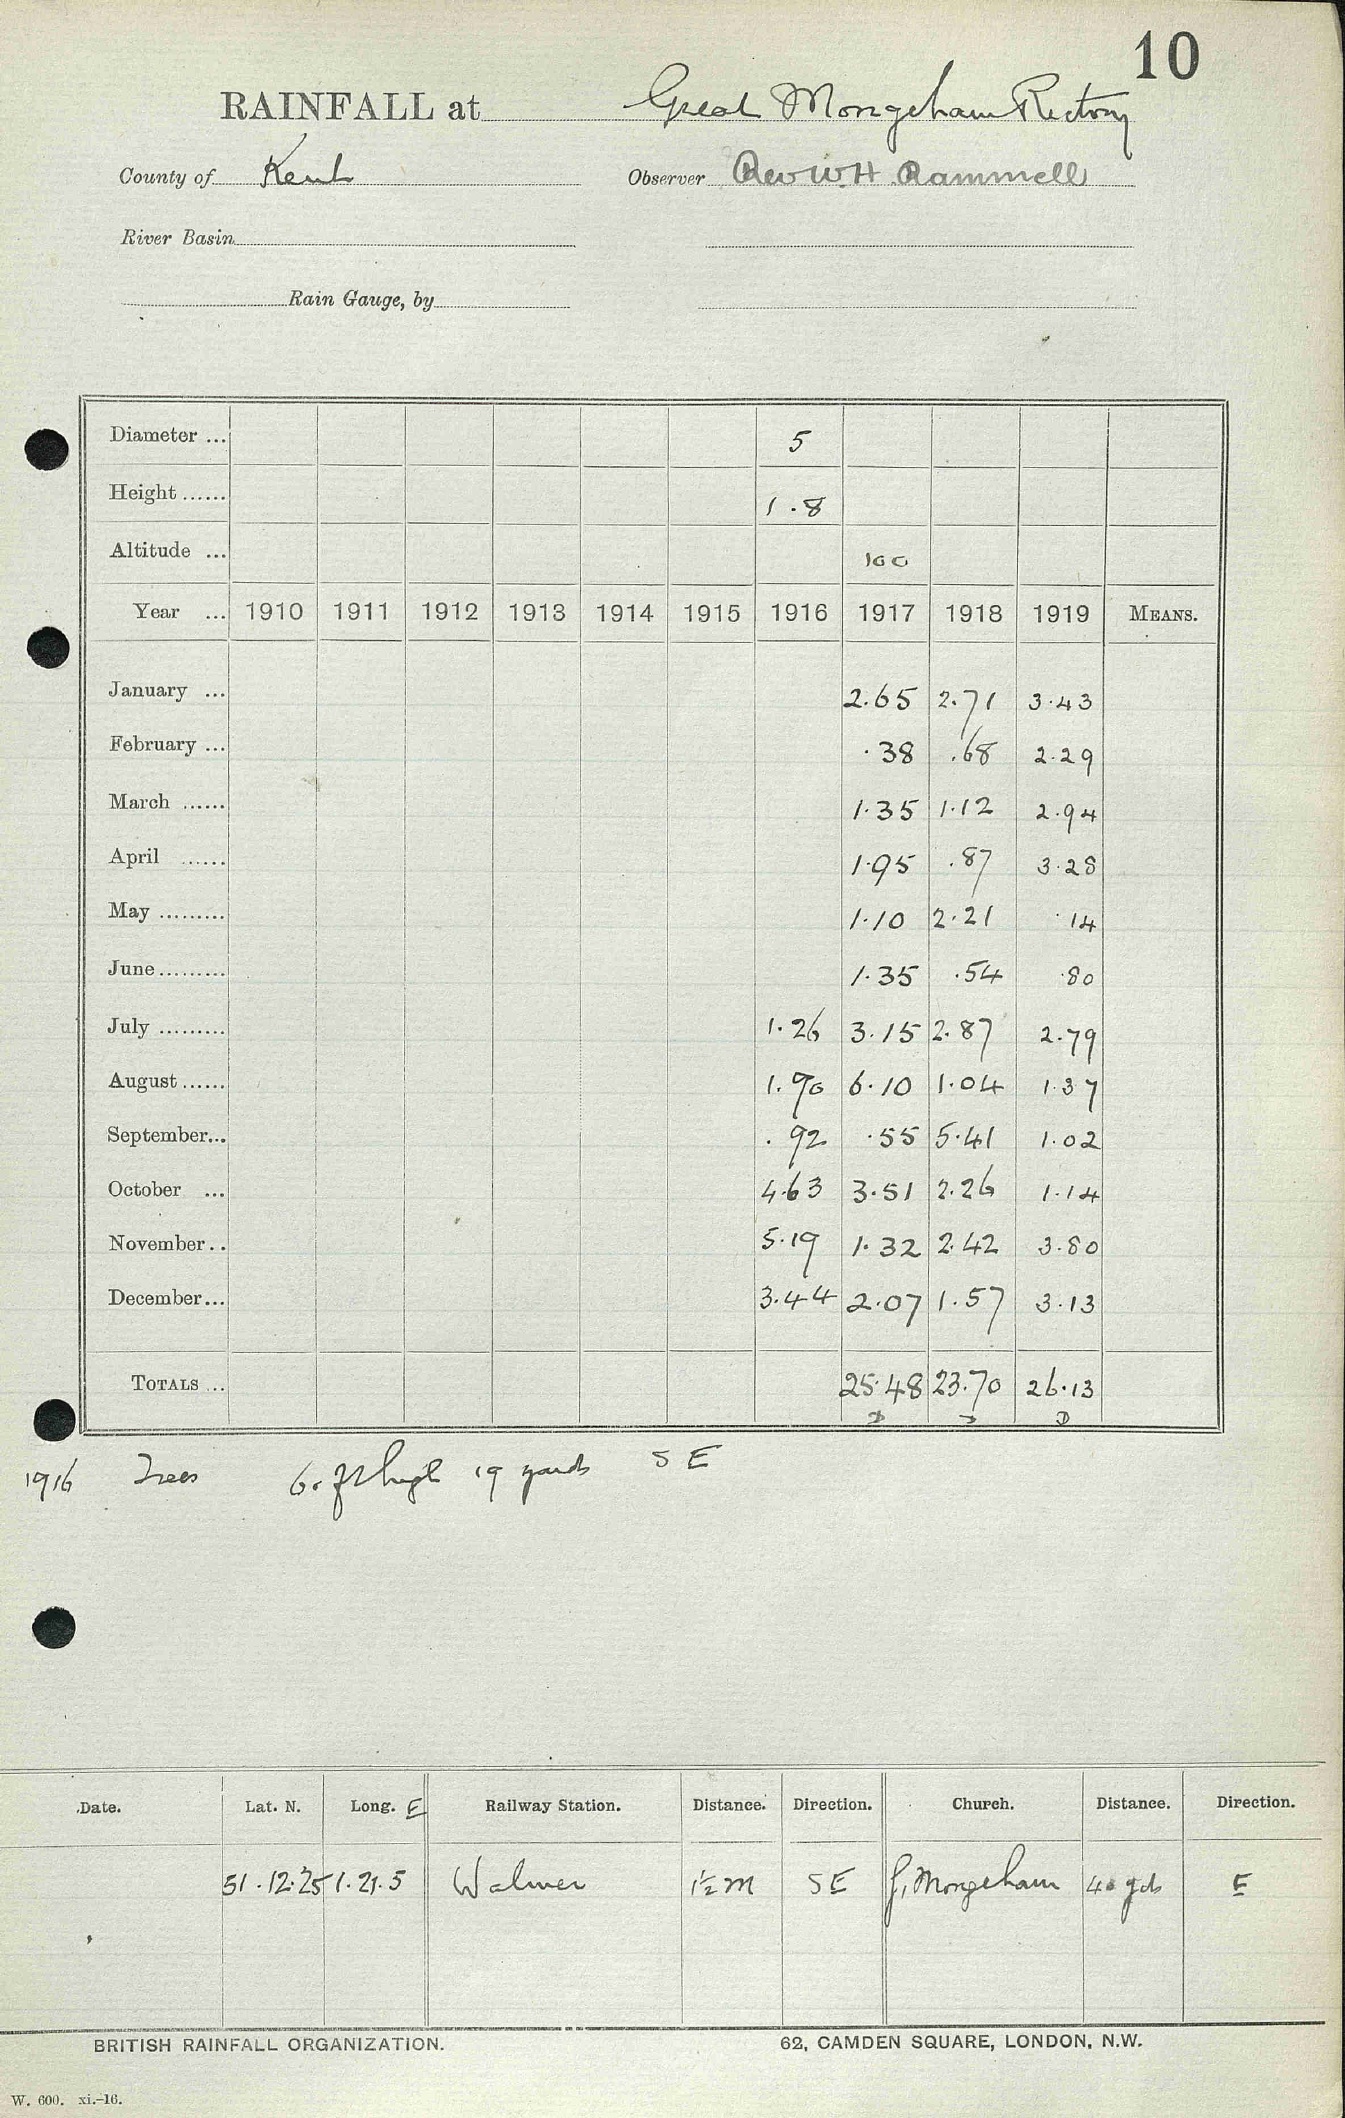 10
RAINFALL at Great Mongeham Rectory
County of Kent Observer Rev W.H. Rammell
River Basin
Rain Gauge, by
Diameter ... 5
Height ...... 1.8
Altitude ... 100
Year ... 1910 1911 1912 1913 1914 1915 1916 1917 1918 1919 MEANS.
January ... 2.65 2.71 3.43
February ... .38 .68 2.29
March ...... 1.35 1.12 2.94
April ...... 1.95 .87 3.28
May ......... 1.10 2.21 .14
June ......... 1.35 .54 .80
July ......... 1.26 3.15 2.87 2.79
August ...... 1.90 6.10 1.04 1.37
September... .92 .55 5.41 1.02
October ... 4.63 3.51 2.26 1.14
November.. 5.19 1.32 2.42 3.80
December... 3.44 2.07 1.57 3.13
TOTALS ... 25.48 23.70 26.13
1916 Trees high 19 yards S E
Date. Lat. N. Long. E Railway Station. Distance. Direction. Church. Distance. Direction.
51.12.25 1.21.5 Walmer 1½ m SE G. Mongeham 40 yds E
BRITISH RAINFALL ORGANIZATION. 62, CAMDEN SQUARE, LONDON, N.W.
W. 600. xi.–16.